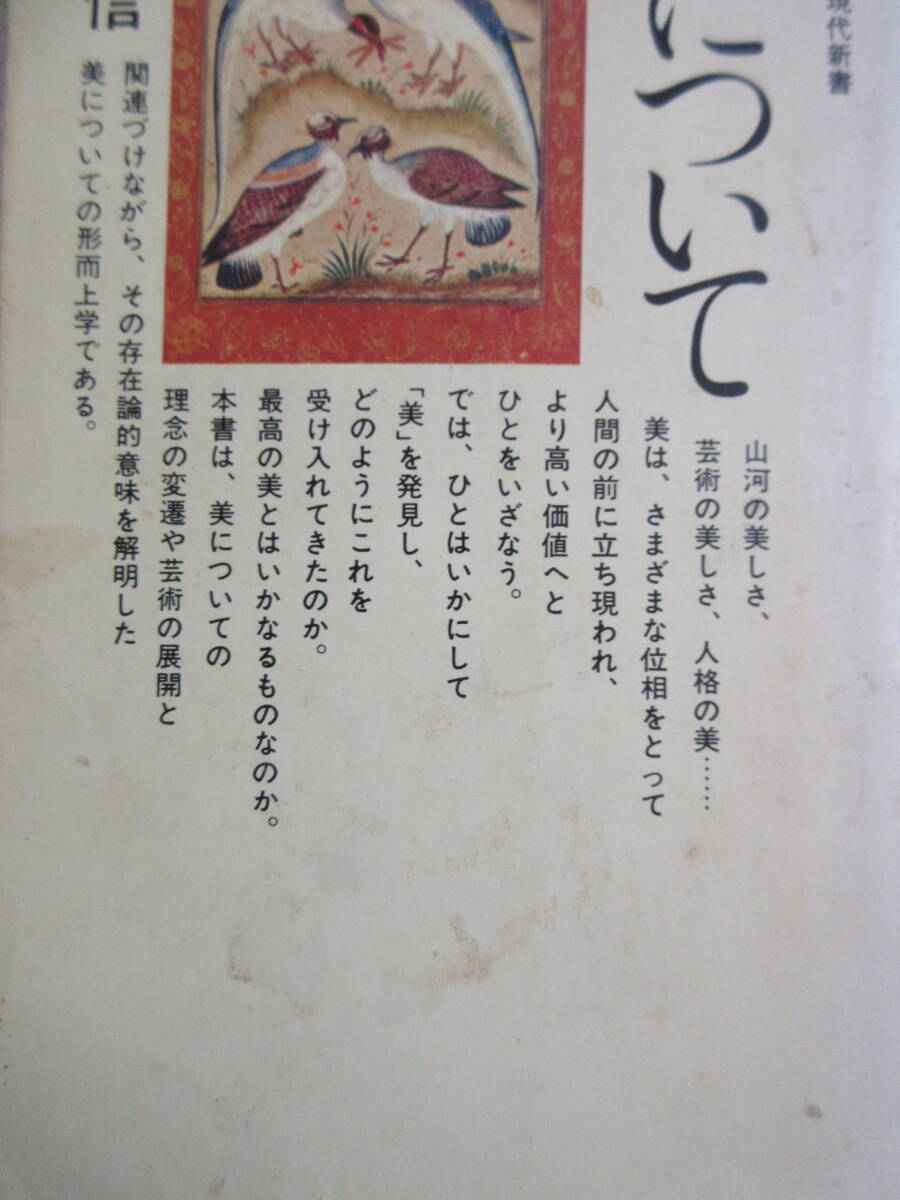 現代新書
について
山河の美しさ、
芸術の美しさ、人格の美……
美は、さまざまな位相をとって
人間の前に立ち現われ、
より高い価値へと
ひとをいざなう。
では、ひとはいかにして
「美」を発見し、
どのようにこれを
受け入れてきたのか。
最高の美とはいかなるものなのか。
本書は、美についての
理念の変遷や芸術の展開と
関連づけながら、その存在論的意味を解明した
美についての形而上学である。
信